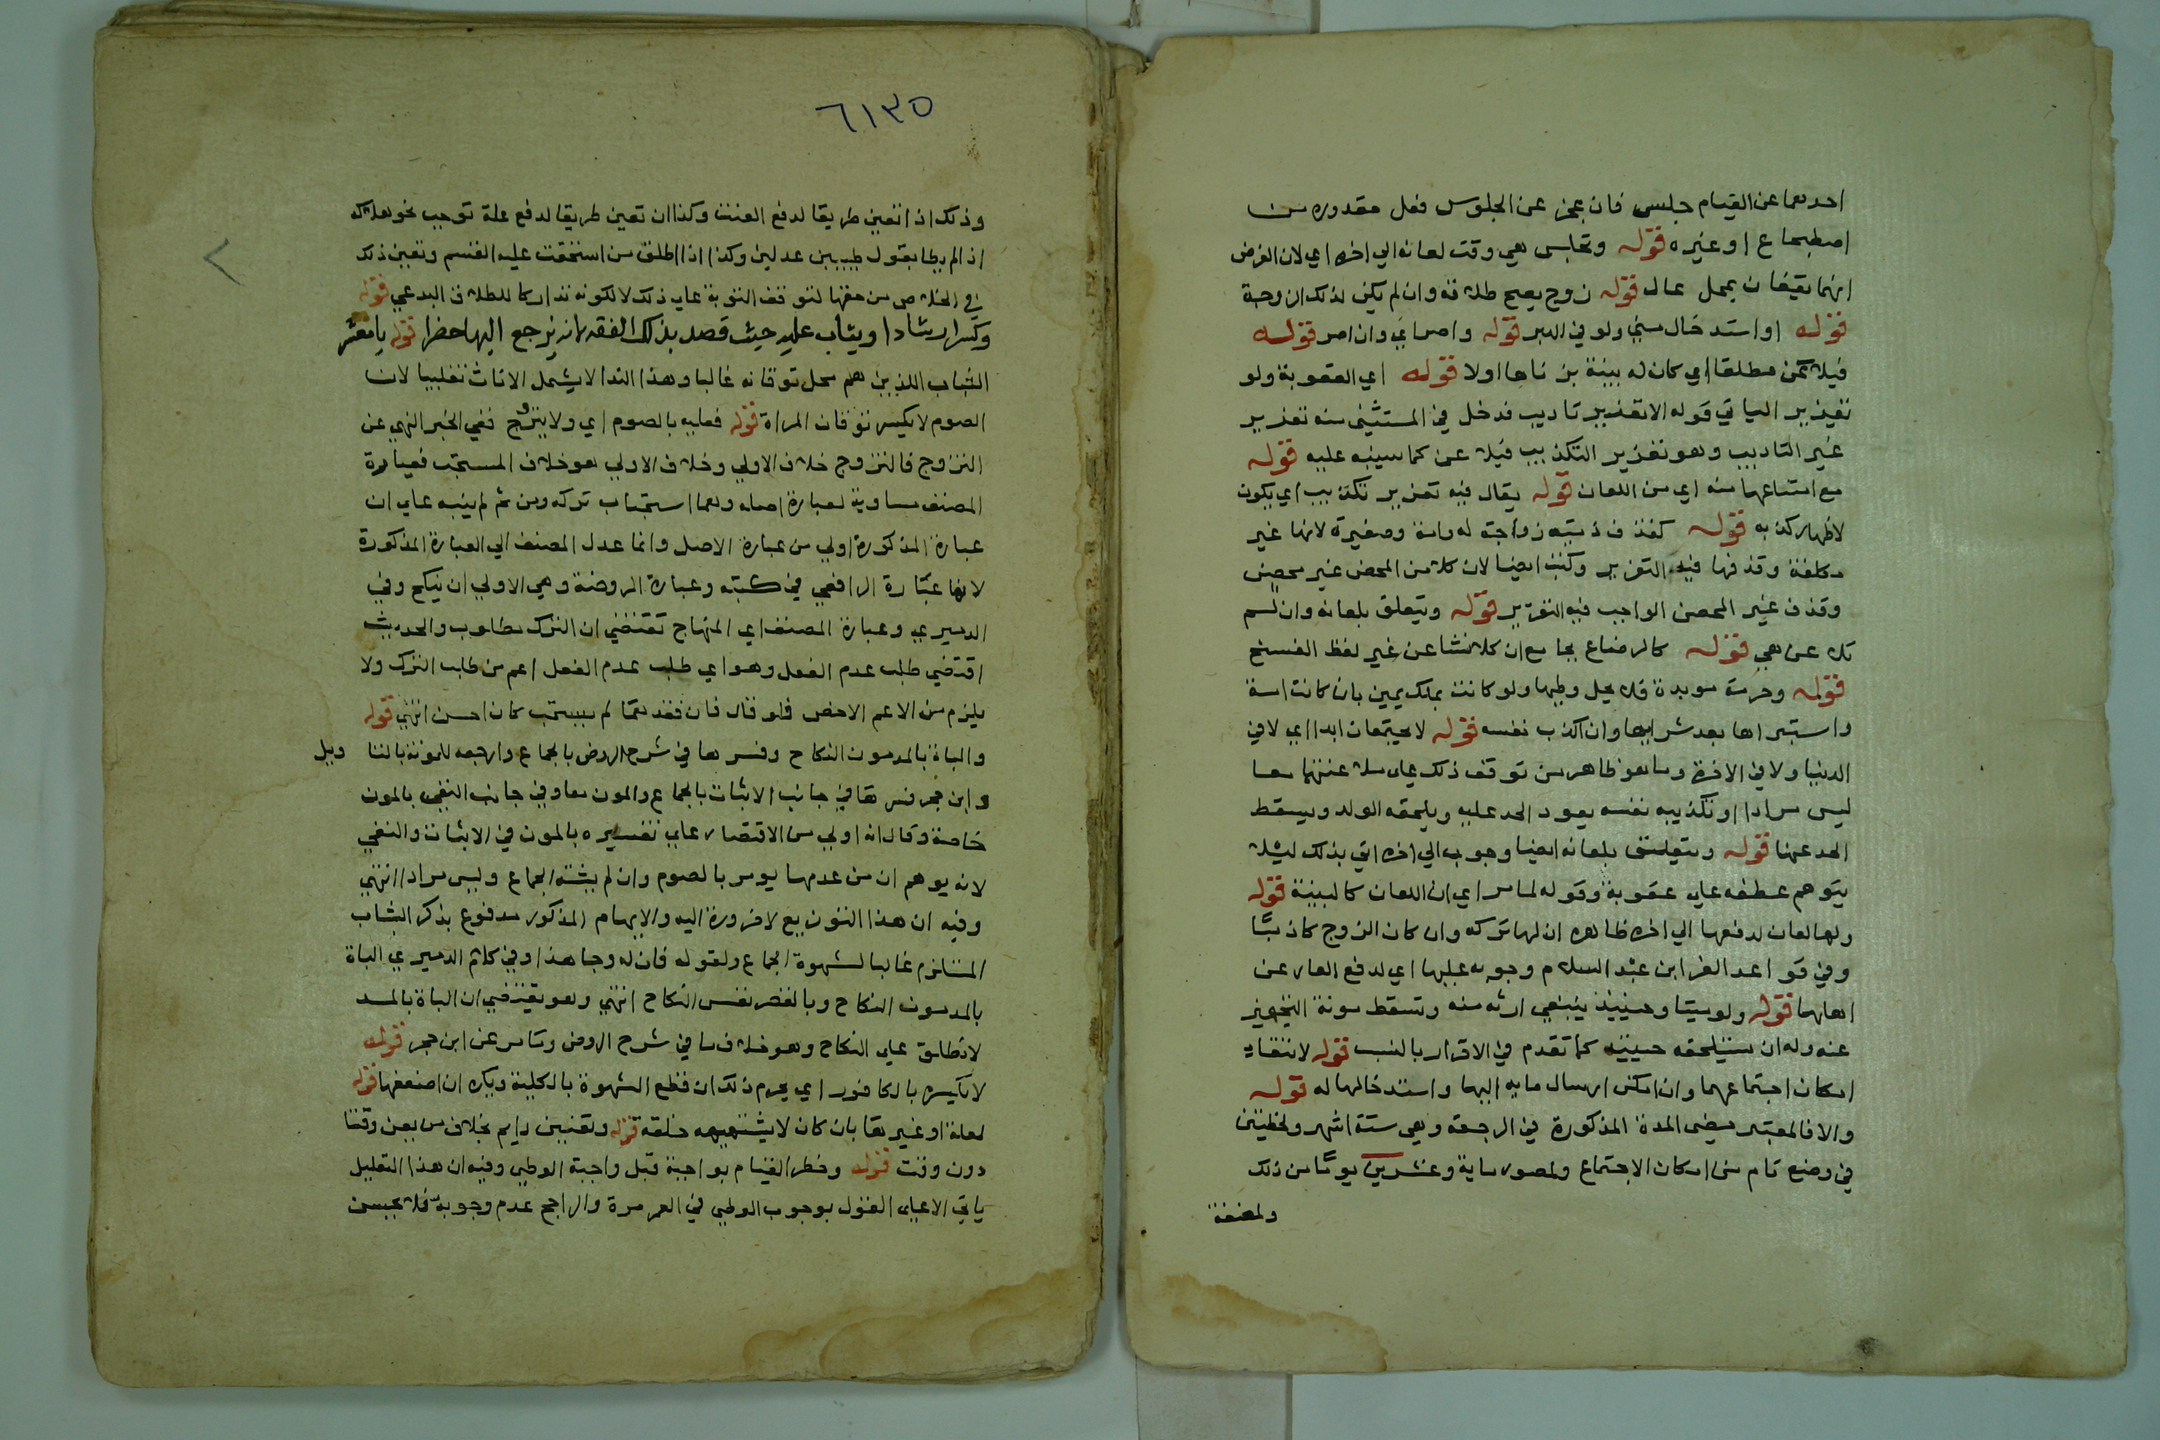 احدهما عن القيام جلس فان عجز عن الجلوس فعل مقدوره من
اضطجاع او غيره قوله وتجلس هي وقت لعانه الي اخره اي لان الغرض
انهما يقيفان بمحل عال قوله زوج يصح طلاقه وان لم يكن لذلك الزوجة
قوله او استدخال مني ولو في الدبر قوله وان امر قوله
فيلاعن مطلقا اي كان له بينة بزناها اولا قوله اي العقوبة ولو
تعزير الياتي قوله الا تعزير تاديب فدخل في المستثني منه تعزير
غير التاديب وهو تعزير التكذيب فيلاعن كما سينبه عليه قوله
مع امتناعها منه اي من اللعان قوله يقال فيه تعزير تكذيب اي يكون
لاظهار كذبه قوله كقذف ذمية زوجته له وامة وصغيرة لانها غير
مكلفة وقذفها فيه التعزير وكتب ايضا لان كلا من المحض غير محصن
وقذف غير المحصن الواجب فيه التعزير قوله ويتعلق بلعانه وان لم
تلاعن هي قوله كالرضاع بجامع ان كلا نشا عن غير لفظ الفسخ
قوله وحرمة موبدة فلا يحل وطيها ولو كانت بملك يمين بان كانت امة
واستبراها بعد شرايها وان اكذب نفسه قوله لا يجتمعان ابدا اي لا في
الدنيا ولا في الاخرة وما هو ظاهر من توقف ذلك علي ملاعنتهما معا
ليس مرادا او تكذيبه نفسه يعود الحد عليه ويلحقه الولد ويسقط
الحد عنها قوله ويتعلق بلعانه ايضا وجوب الي اخره اتي بذلك ليلا
يتوهم عطفه علي عقوبة وقوله لما مر اي ان اللعان كالبينة قوله
ولها لعان لدفعها الي اخره ظاهره ان لها تركه وان كان الزوج كاذبا
وفي قواعد العز ابن عبد السلام وجوبه عليها اي لدفع العار عن
اهلها قوله ولو ميتا وحينيذ ينبغي ارثه منه وتسقط مونة التجهيز
عنه وله ان يستلحقه حينيذ كما تقدم في الاقرار بالنسب قوله لانتفاء
امكان اجتماعهما وان امكن ارسال مايه اليها واستدخالها له قوله
والا فالمعتبر مضي المدة المذكورة في الرجعة وهي ستة اشهر ولحظتين
في وضع تام من امكان الاجتماع ولمصور ماية وعشرين يوما من ذلك
ولمضغة
٦١٣٥
وذلك اذا تعين طريقا لدفع العنت وكذا ان تعين طريقا لدفع علة توجب نحو هلاك
اذا لم يطا بقول طبيبين عدلين وكذا اذا طلق من استحقت عليه القسم وتعين ذلك
في الخلاص من حقها لتوقف التوبة علي ذلك لا لكونه تداركا للطلاق البدعي قوله
وكسرا رشادا ويثاب عليه حيث قصد بذلك لانه يرجع اليها قوله يا معشر
الشباب الذين هم محل توقانه غالبا وهذا الندا لا يشمل الاناث تغليبا لان
الصوم لا يكسر توقان المراة قوله فعليه بالصوم اي ولا يتزوج ففي الخبر النهي عن
التزوج فالتزوج خلاف الاولي وخلاف الاولي هو خلاف المستحب فعبارة
المصنف مساوية لعبارة اصله وهما استحباب تركه ومن ثم لم ينبه علي ان
عبارة المذكورة اولي من عبارة الاصل وانما عدل المصنف الي العبارة المذكورة
لانها عبارة الرافعي في كتبه وعبارة الروضة وهي الاولي ان ينكح وفي
الدميري وعبارة المصنف اي المنهاج تقتضي ان الترك مطلوب والحديث
اقتضي طلب عدم الفعل وهو اي طلب عدم الفعل اعم من طلب الترك ولا
يلزم من الاعم الاخص فلو قال فان فقدها لم يستحب كان احسن انتهي قوله
والباة بالمد مون النكاح وفسرها في شرح الروض بالجماع وارجعه للمونة بالتا
وابن حجر فسرها في جانب الاثبات بالجماع والمون معا وفي جانب النفي بالمون
خاصة وقال انه اولي من الاقتصار علي تفسيره بالمون في الاثبات والنفي
لانه يوهم ان من عدمها يومر بالصوم وان لم يشته الجماع وليس مرادا انتهي
وفيه ان هذا التنويع لا ضرورة اليه والايهام المذكور مدفوع بذكر الشاب
المستلزم غالبا لشهوة الجماع ولقوله فان له وجا هذا وفي كلام الدميري الباة
بالمد مون النكاح وبالقصر نفس النكاح انتهي وهو يقتضي ان الباة بالمد
لا تطلق علي النكاح وهو خلاف ما في شرح الروض وما مر عن ابن حجر قوله
لا يكسره بالكافور اي يحرم ذلك ان قطع الشهوة بالكلية ويكره ان اضعفها قوله
لعلة او غيرها بان كان لا يشتهيه خلقة قوله وتعنين دايم بخلاف من يعن وقتا
دون وقت قوله وخطر القيام بواجبه قبل واجبة الوطي وفيه ان هذا التعليل
ياتي الا علي القول بوجوب الوطي في العمر مرة والراجح عدم وجوبه فلا يحسن